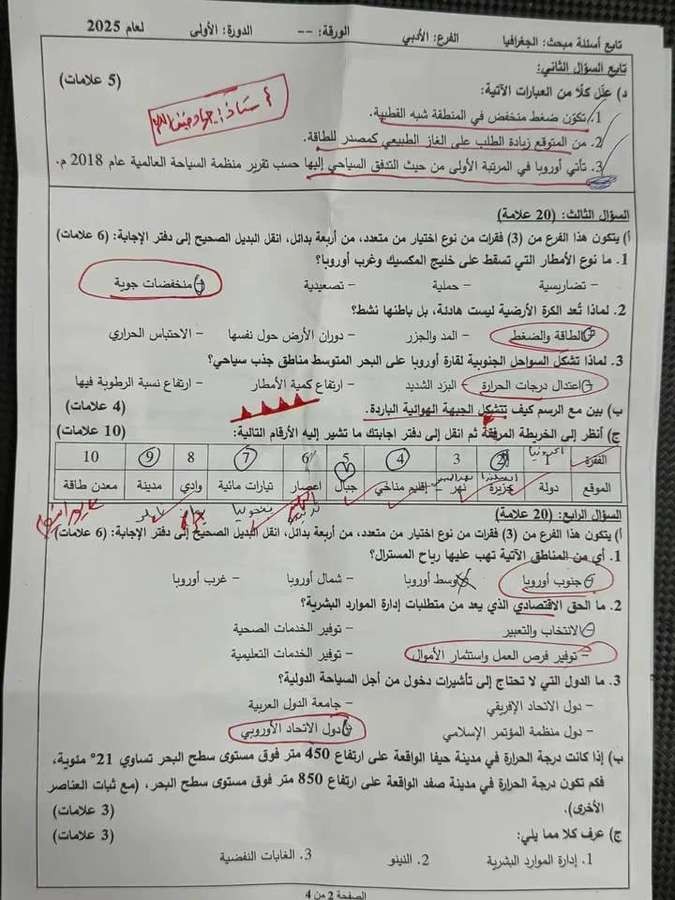 تابع أسئلة مبحث: الجغرافيا الفرع: الأدبي الورقة: -- الدورة: الأولى لعام 2025
تابع السؤال الثاني:
د) علّل كلًا من العبارات الآتية: (5 علامات)
1. تكوّن ضغط منخفض في المنطقة شبه القطبية.
2. من المتوقع زيادة الطلب على الغاز الطبيعي كمصدر للطاقة.
3. تأتي أوروبا في المرتبة الأولى من حيث التدفق السياحي إليها حسب تقرير منظمة السياحة العالمية عام 2018 م.
السؤال الثالث: (20 علامة)
أ) يتكون هذا الفرع من (3) فقرات من نوع اختيار من متعدد، من أربعة بدائل، انقل البديل الصحيح إلى دفتر الإجابة: (6 علامات)
1. ما نوع الأمطار التي تسقط على خليج المكسيك وغرب أوروبا؟
- تضاريسية - حملية - تصعيدية - منخفضات جوية
2. لماذا تُعد الكرة الأرضية ليست هادئة، بل باطنها نشط؟
- الطاقة والضغط - المد والجزر - دوران الأرض حول نفسها - الاحتباس الحراري
3. لماذا تشكل السواحل الجنوبية لقارة أوروبا على البحر المتوسط مناطق جذب سياحي؟
- اعتدال درجات الحرارة - البرَد الشديد - ارتفاع كمية الأمطار - ارتفاع نسبة الرطوبة فيها
ب) بين مع الرسم كيف تتشكل الجبهة الهوائية الباردة. (4 علامات)
ج) أنظر إلى الخريطة المرفقة ثم انقل إلى دفتر اجابتك ما تشير إليه الأرقام التالية: (10 علامات)
الفقرة 1 2 3 4 5 6 7 8 9 10
الموقع دولة جزيرة نهر إقليم مناخي جبال اعصار تيارات مائية وادي مدينة معدن طاقة
السؤال الرابع: (20 علامة)
أ) يتكون هذا الفرع من (3) فقرات من نوع اختيار من متعدد، من أربعة بدائل، انقل البديل الصحيح إلى دفتر الإجابة: (6 علامات)
1. أي من المناطق الآتية تهب عليها رياح المسترال؟
- جنوب أوروبا - وسط أوروبا - شمال أوروبا - غرب أوروبا
2. ما الحق الاقتصادي الذي يعد من متطلبات إدارة الموارد البشرية؟
- الانتخاب والتعبير - توفير الخدمات الصحية
- توفير فرص العمل واستثمار الأموال - توفير الخدمات التعليمية
3. ما الدول التي لا تحتاج إلى تأشيرات دخول من أجل السياحة الدولية؟
- دول الاتحاد الإفريقي - جامعة الدول العربية
- دول منظمة المؤتمر الإسلامي - دول الاتحاد الأوروبي
ب) إذا كانت درجة الحرارة في مدينة حيفا الواقعة على ارتفاع 450 متر فوق مستوى سطح البحر تساوي 21° مئوية،
فكم تكون درجة الحرارة في مدينة صفد الواقعة على ارتفاع 850 متر فوق مستوى سطح البحر، (مع ثبات العناصر
الأخرى). (3 علامات)
ج) عرف كلا مما يلي: (3 علامات)
1. إدارة الموارد البشرية 2. النينو 3. الغابات النفضية
الصفحة 2 من 4